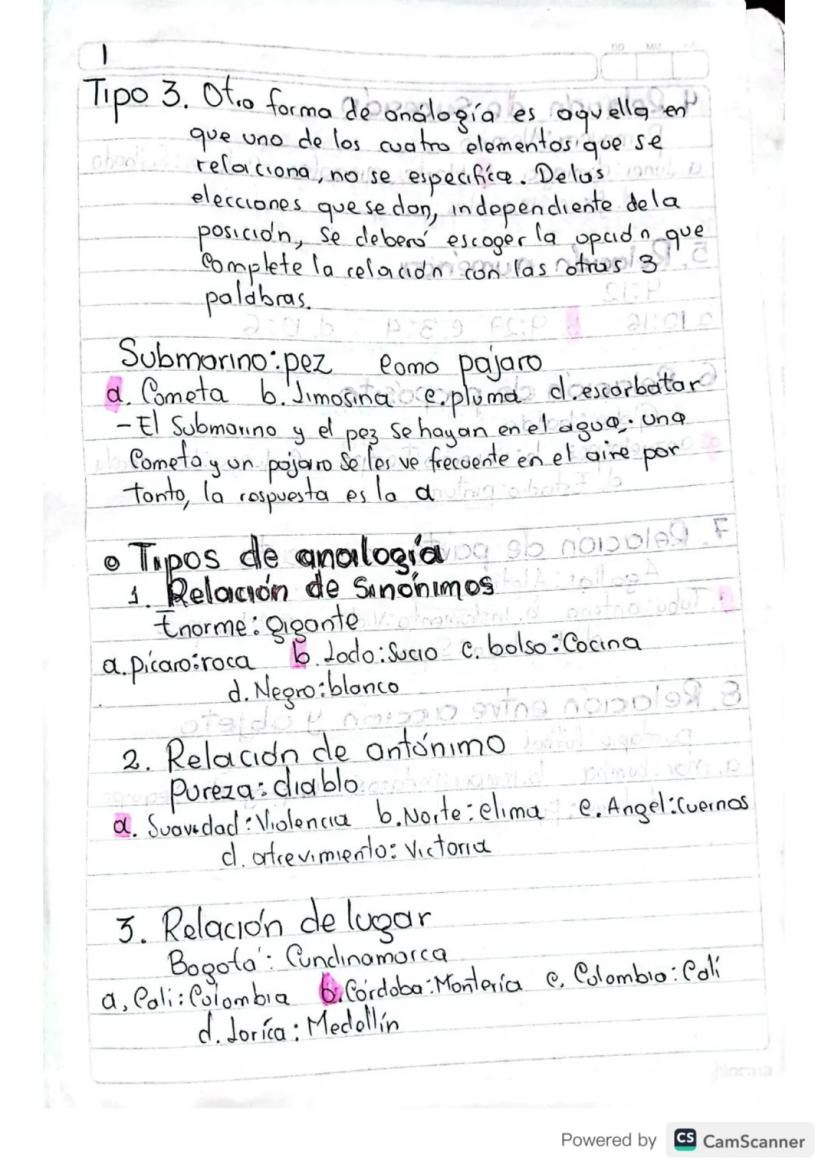 1
Tipo 3. Otro forma de analogía es aquella en
que uno de los cuatro elementos que se
relaciona, no se especifíca. Delas
elecciones que se dan, independiente dela
posición, se deberá escoger la opción que
Complete la relación con las otras 3
palabras.
Submarino:pez Como pájaro
a. Cometa b. limosina c. pluma d. escarbatar
- El Submarino y el pez se hayan en el agua. una
Cometa y un pájaro se les ve frecuente en el aire por
tanto, la respuesta es la a
Tipos de analogía
1. Relación de Sinónimos
Enorme: gigante
a. pícaro:roca b. Lodo:Sucio c. bolso:Cocina
d. Negro:blanco
2. Relación de antónimo
pureza:diablo
a. Suavidad:Violencia b. Norte:clima c. Angel:Cuernos
d. atrevimiento:Victoria
3. Relación de lugar
Bogotá: Cundinamarca
a, Cali:Colombia b. Córdoba:Montería c. Colombia:Calí
d. Loríca: Medellín
Norma
Powered by CS CamScanner